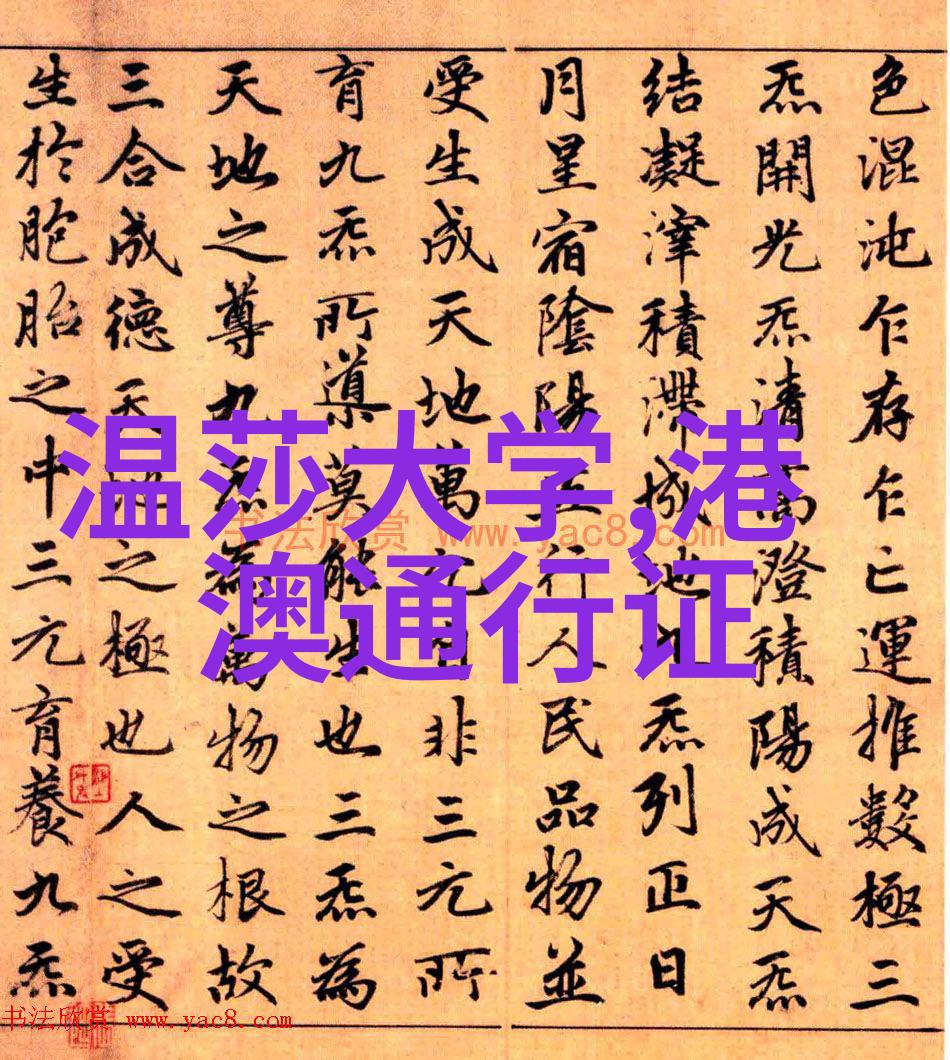 色混沌乍存乍亡運推數極三
炁開光炁清高澄積陽成天炁
結凝滓積滯成地九炁列正日
月星宿陰陽五行人民品物並
受生成天地萬化自非三元所
育九炁所導莫能生也三炁為
天地之尊九炁為萬物之根故
三合成德天地之極也人之受
生於胞胎之中三元育養九炁
温莎大学,港
澳通行证
书法欣赏 www.yac8.com
书法欣赏 www.yac8.com